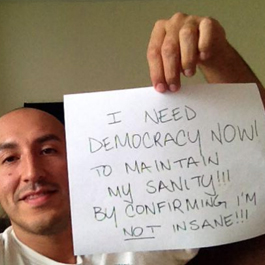 I NEED
DEMOCRACY NOW!
TO MAINTAIN
MY SANITY!!!
BY CONFIRMING I'M
NOT INSANE!!!